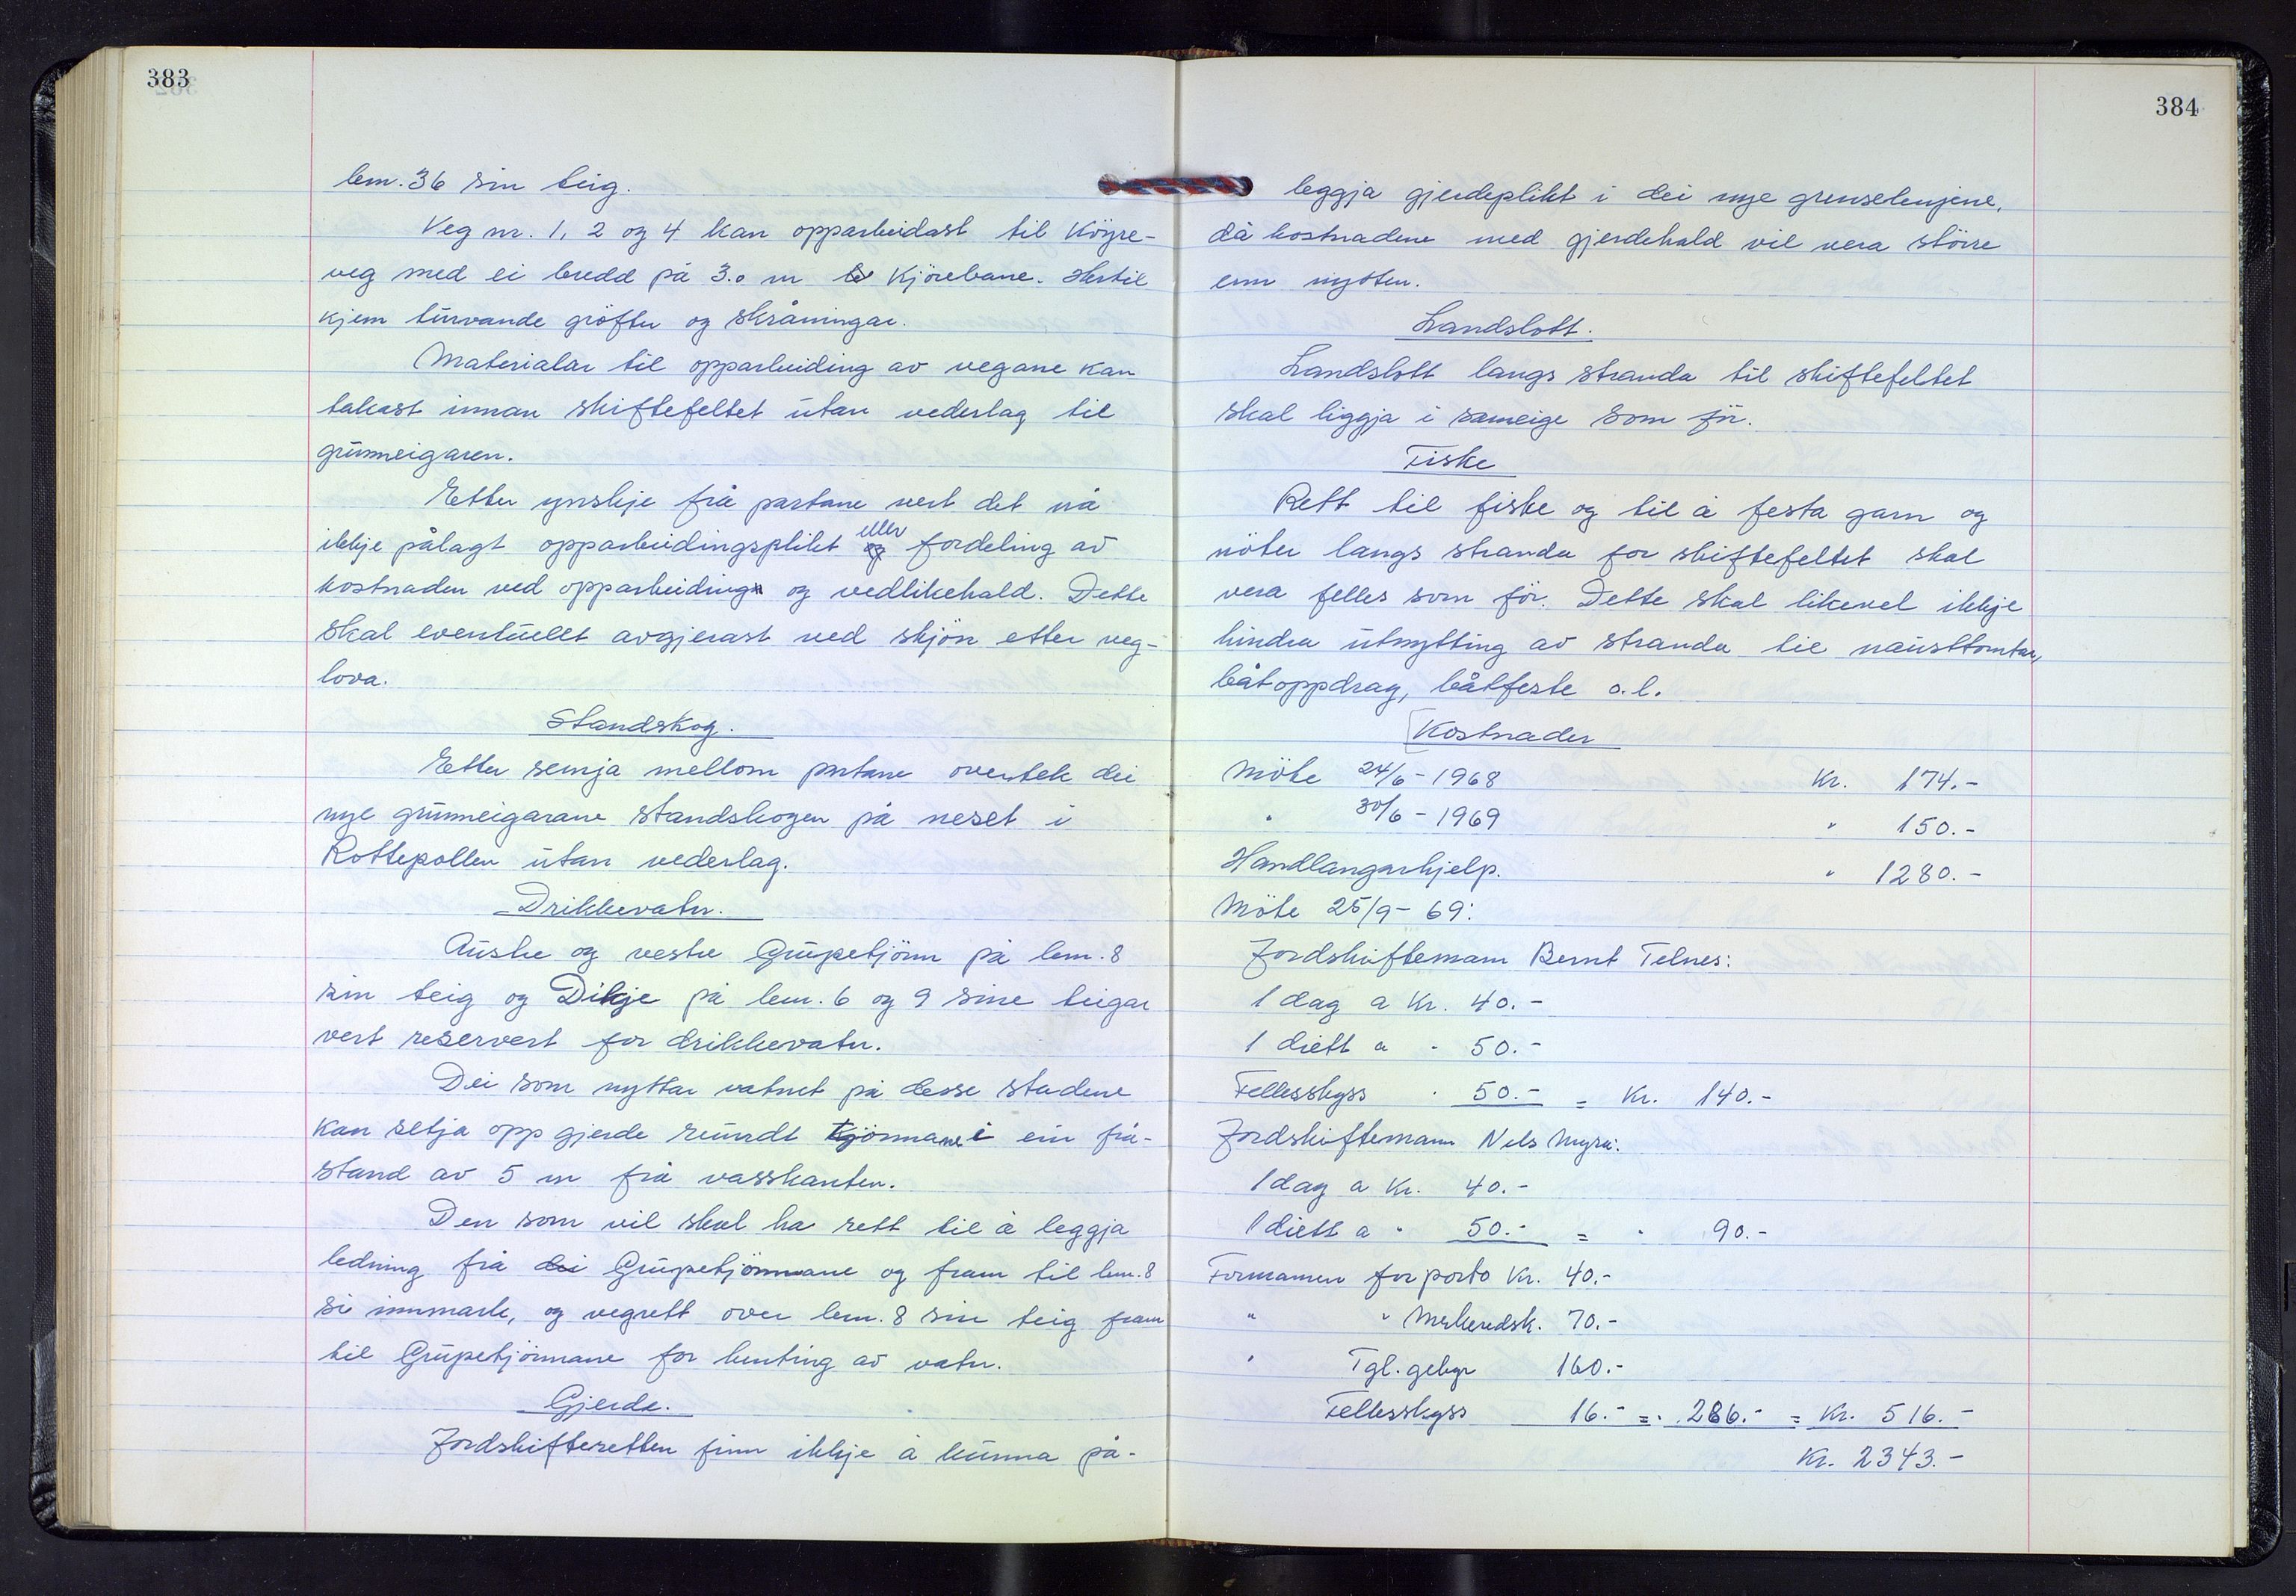 383
lem. 36 sin teig.
Veg nr. 1, 2 og 4 kan opparbeidast til Köyre-
veg med ei bredd på 3.0 m kjörebane. Hertil
kjem turvande gröfter og skråningar.
Materialar til opparbeiding av vegane kan
takast innan skiftefeltet utan vederlag til
grunneigaren.
Etter ynskje frå partane vert det nå
ikkje pålagt opparbeidingsplikt eller fordeling av
kostnaden ved opparbeiding og vedlikehald. Dette
skal eventuellt avgjerast ved skjön etter veg-
lova.
Standskog.
Etter semja mellom partane overtek dei
nye grunneigarane standskogen på neset i
Rottepollen utan vederlag.
Drikkevatn.
Austre og vestre Grupetjönn på lem. 8
sin teig og Dikje på lem. 6 og 9 sine teigar
vert reservert for drikkevatn.
Dei som nyttar vatnet på desse stadene
kan setja opp gjerde rundt tjönnane i ein frå-
stand av 5 m frå vasskanten.
Den som vil skal ha rett til å leggja
ledning frå dei Grupetjönnane og fram til lem. 8
si innmark, og vegrett over lem. 8 sin teig fram
til Grupetjönnane for henting av vatn.
Gjerde.
Jordskifteretten finn ikkje å kunna på-
384
leggja gjerdeplikt i dei nye grenselinjene,
då kostnadene med gjerdehald vil vera större
enn nytten.
Landslott.
Landslott langs stranda til skiftefeltet
skal liggja i sameige som för.
Fiske
Rett til fiske og til å festa garn og
nöter langs stranda for skiftefeltet skal
vera felles som för. Dette skal likevel ikkje
hindra utnytting av stranda til nausttomtar,
båtoppdrag, båtfeste o.l.
Kostnader
Möte 24/6 - 1968 Kr. 174.-
" 30/6 - 1969 " 150.-
Handlangarhjelp. " 1280.-
Möte 25/9 - 69:
Jordskiftemann Bernt Telnes:
1 dag a Kr. 40.-
1 diett a " 50.-
Fellesskyss " 50.- = Kr. 140.-
Jordskiftemann Nils Myra:
1 dag a Kr. 40.-
1 diett a " 50.- = " 90.-
Formannen for porto Kr. 40.-
" " Merkeredsk. 70.-
" Tgl. gebyr 160.-
Fellesskyss 16.- = " 286.- = Kr. 516.-
Kr. 2343.-